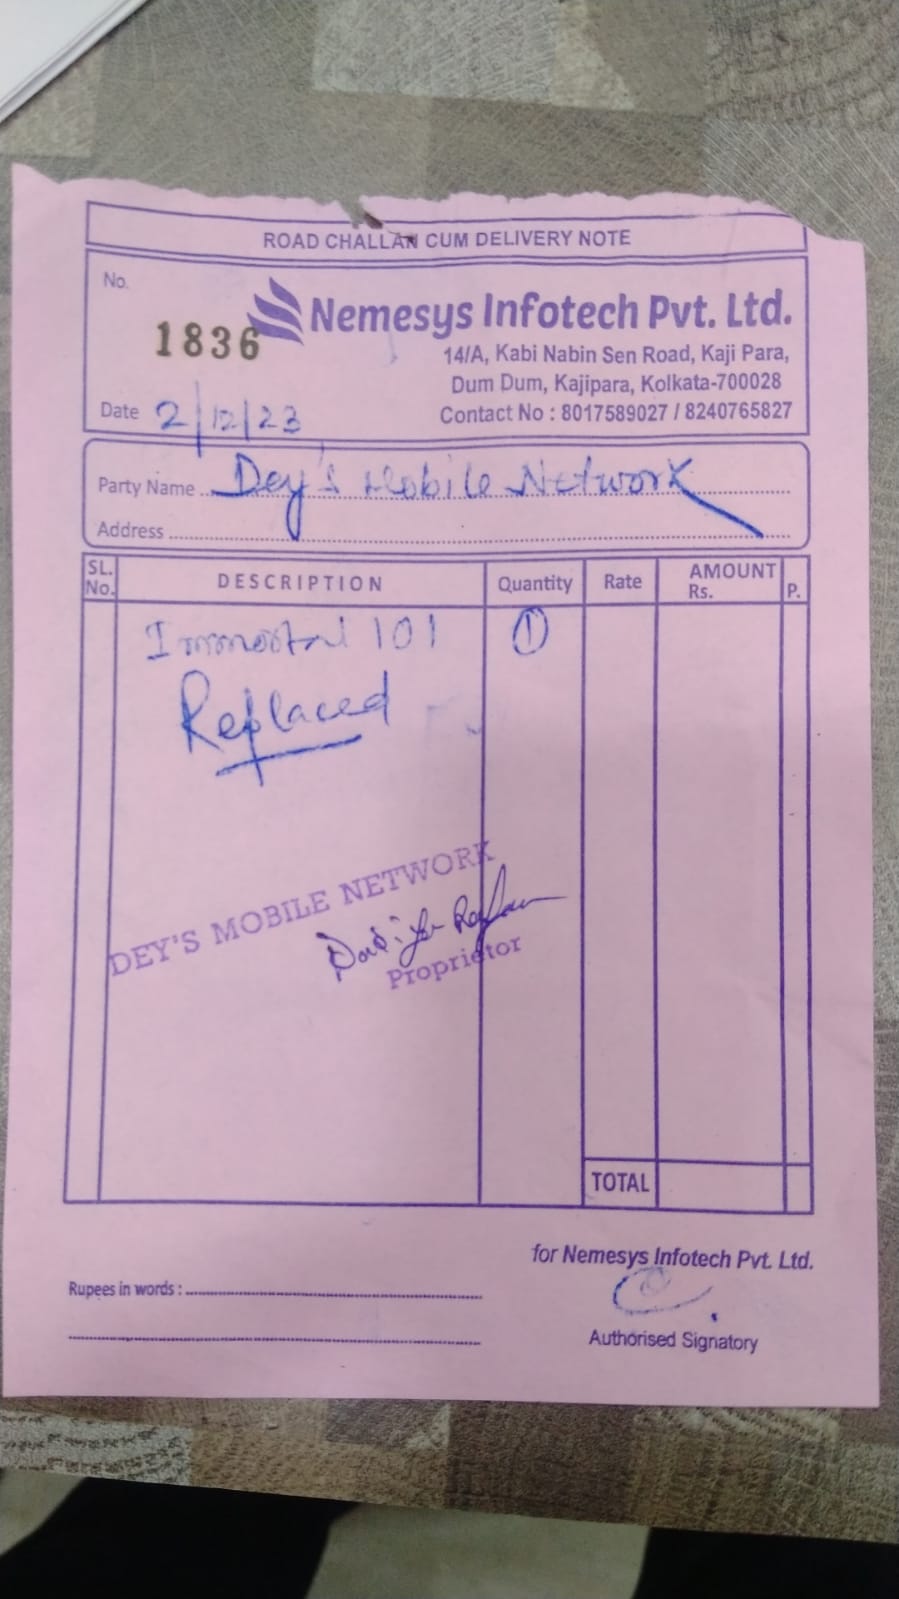 ROAD CHALLAN CUM DELIVERY NOTE
No.
1836
Nemesys Infotech Pvt. Ltd.
14/A, Kabi Nabin Sen Road, Kaji Para,
Dum Dum, Kajipara, Kolkata-700028
Date 2/12/23
Contact No : 8017589027 / 8240765827
Party Name Dey's Mobile Network
Address
SL. No. DESCRIPTION Quantity Rate AMOUNT Rs. P.
Immortal 101 1
Replaced
DEY'S MOBILE NETWORK
Proprietor
TOTAL
for Nemesys Infotech Pvt. Ltd.
Rupees in words :
Authorised Signatory